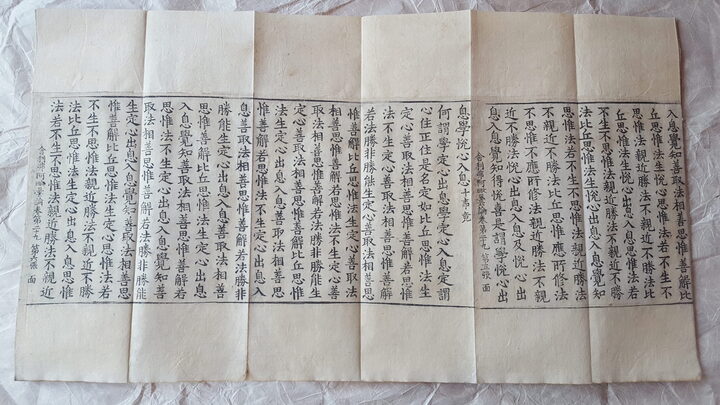 入息覺知善取法相善思惟善解比
思惟法若不生不思惟法親近勝法
不親近不勝法比丘思惟應所修法
不思惟不應所修法親近勝法不親
近不勝法悅心出息入息及悅心出
息入息覺知得悅喜是謂學悅心出
舍利弗阿毗曇論卷第二十七 第五張 面
息學悅心入息 十事竟
何謂學定心出息學定心入息定謂
心住正住是名定如比丘思惟法生
定心善取法相善思惟善解若思惟
法不生定心善取法相善思惟善解
若法勝非勝能生定心善取法相善思
惟善解比丘思惟法生定心善取法
相善思惟善解若思惟法不生定心善
取法相善思惟善解若法勝非勝能生
定心善取法相善思惟善解比丘思惟
法生定心出息入息善取法相善思
惟善解若思惟法不生定心出息入
息善取法相善思惟善解若法勝非
勝能生定心出息入息善取法相善
思惟善解比丘思惟法生定心出息
入息覺知善取法相善思惟善解若
思惟法不生定心出息入息覺知善
取法相善思惟善解若法勝非勝能
生定心出息入息覺知善取法相善思
惟善解比丘思惟法生定心思惟法若
不生不思惟法親近勝法不親近不勝
法比丘思惟法生定心出息入息思惟
法若不生不思惟法親近勝法不親近
舍利弗阿毗曇論卷第二十七 第六張 面